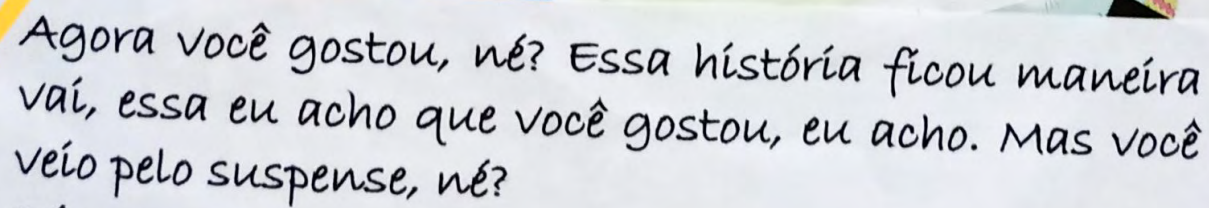 Agora você gostou, né? Essa história ficou maneira
vai, essa eu acho que você gostou, eu acho. Mas você
veio pelo suspense, né?